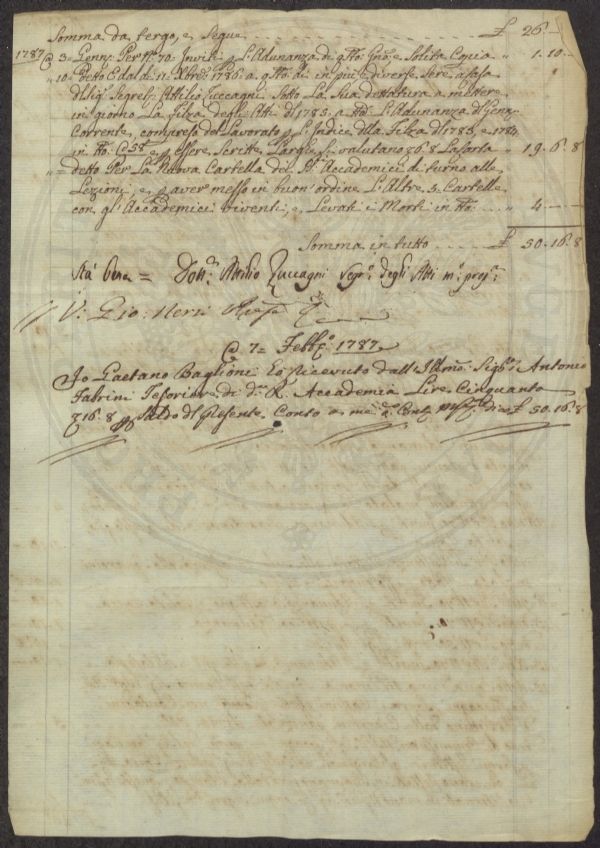 Somma da tergo, e Segue £ 26. —
1787 @ 3 = Genn. Per N. 70. Inviti p L'Adunanza di q̃to Gño, e Solita Copia " 1. 10 —
" 10 = Detto E dal dì 11. Xbre 1786. a q̃to dì in più, e diverse Sere a Casa
Segret. Attilio Zuccagni Sotto La Sua dettatura a mettere
in giorno La Filza degli Atti dl 1785. a L'Adunanza dl Genn.
Corrente, compreso del lavorato p L'Indice dlla Filza dl 1785, e 1784
in tto C. 58 e p essere Scritte Larghe, Si valutano 86. 8 La Sorta " 19. 6. 8
" = detto Per La Nuova Cartella dei SS. Accademici di turno alle
Lezioni, e p aver messo in buon' ordine L'Altre 5. Cartelle
con gl' Accademici viventi, e Levati i Morti in tto " 4 — —
Somma in tutto £ 50. 16. 8
Stà bene = Dott. Attilio Zuccagni Segr. degli Atti m. prop.
V. Gio: Neri
@ 7 = Febb. 1787.
Io Gaetano Baglioni Ho ricevuto dall' Illmo Sig. Antonio
Fabrini Tesoriere di d. R. Accademia Lire Cinquanta
16. 8 p Saldo dl Presente Conto a me di £ 50. 16. 8